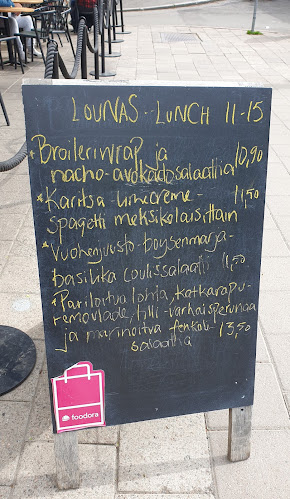 LOUNAS - LUNCH 11-15
* Broileriwrap ja
nacho-avokadosalaattia 10,90
* Karitsa-limecreme-
spagetti meksikolaisittain 11,50
* Vuohenjuusto-boysenmarja-
basilika coulissalaatti 11,50
* Pariloitua lohta, katkarapu-
remoulade, tilli-varhaisperunaa
ja marinoitua fenkoli- 13,50
salaattia
foodora